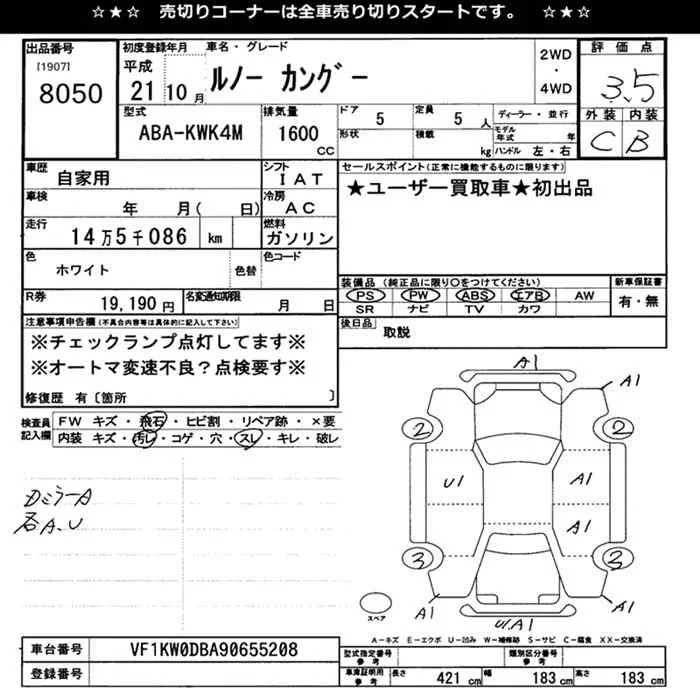 ☆★☆ 売切りコーナーは全車売り切りスタートです。 ☆★☆
出品番号 初度登録年月 車名・グレード 2WD 評価点
[1907] 平成 ルノー カングー ・
8050 21 10 月 4WD 3.5
型式 排気量 ドア 5 定員 5 人 ディーラー・並行 外装 内装
ABA-KWK4M 1600 CC 形状 積載 kg モデル年式 年 ハンドル 左・右 C B
車歴 自家用 シフト IAT セールスポイント(正常に機能するものに限ります)
車検 年 月( 日) 冷房 AC ★ユーザー買取車★初出品
走行 14万5千086 km 燃料 ガソリン
色 ホワイト 色替 色コード
装備品 (純正品に限り○をつけてください) 新車保証書
R券 19,190円 名変通知期限 月 日 PS PW ABS エアB AW 有・無
SR ナビ TV カワ
注意事項申告欄(不具合内容等は具体的に記入して下さい) 後日品 取説
※チェックランプ点灯してます※
※オートマ変速不良?点検要す※
修復歴 有〔箇所 〕
検査員 FW キズ・飛石・ヒビ割・リペア跡・×要
記入欄 内装 キズ・汚レ・コゲ・穴・スレ・キレ・破レ
A1
A1
2 2
U1 A1
A1
カミラーA
各A.U
3 3
A1 A1
U1.A1
スペア
A-キズ E-エクボ U-凹み W-補修跡 S-サビ C-腐食 XX-交換済
車台番号 VF1KW0DBA90655208 型式指定番号 参考 類別区分番号 参考
登録番号 車庫証明用 参考 長さ 421 cm 幅 183 cm 高さ 183 cm